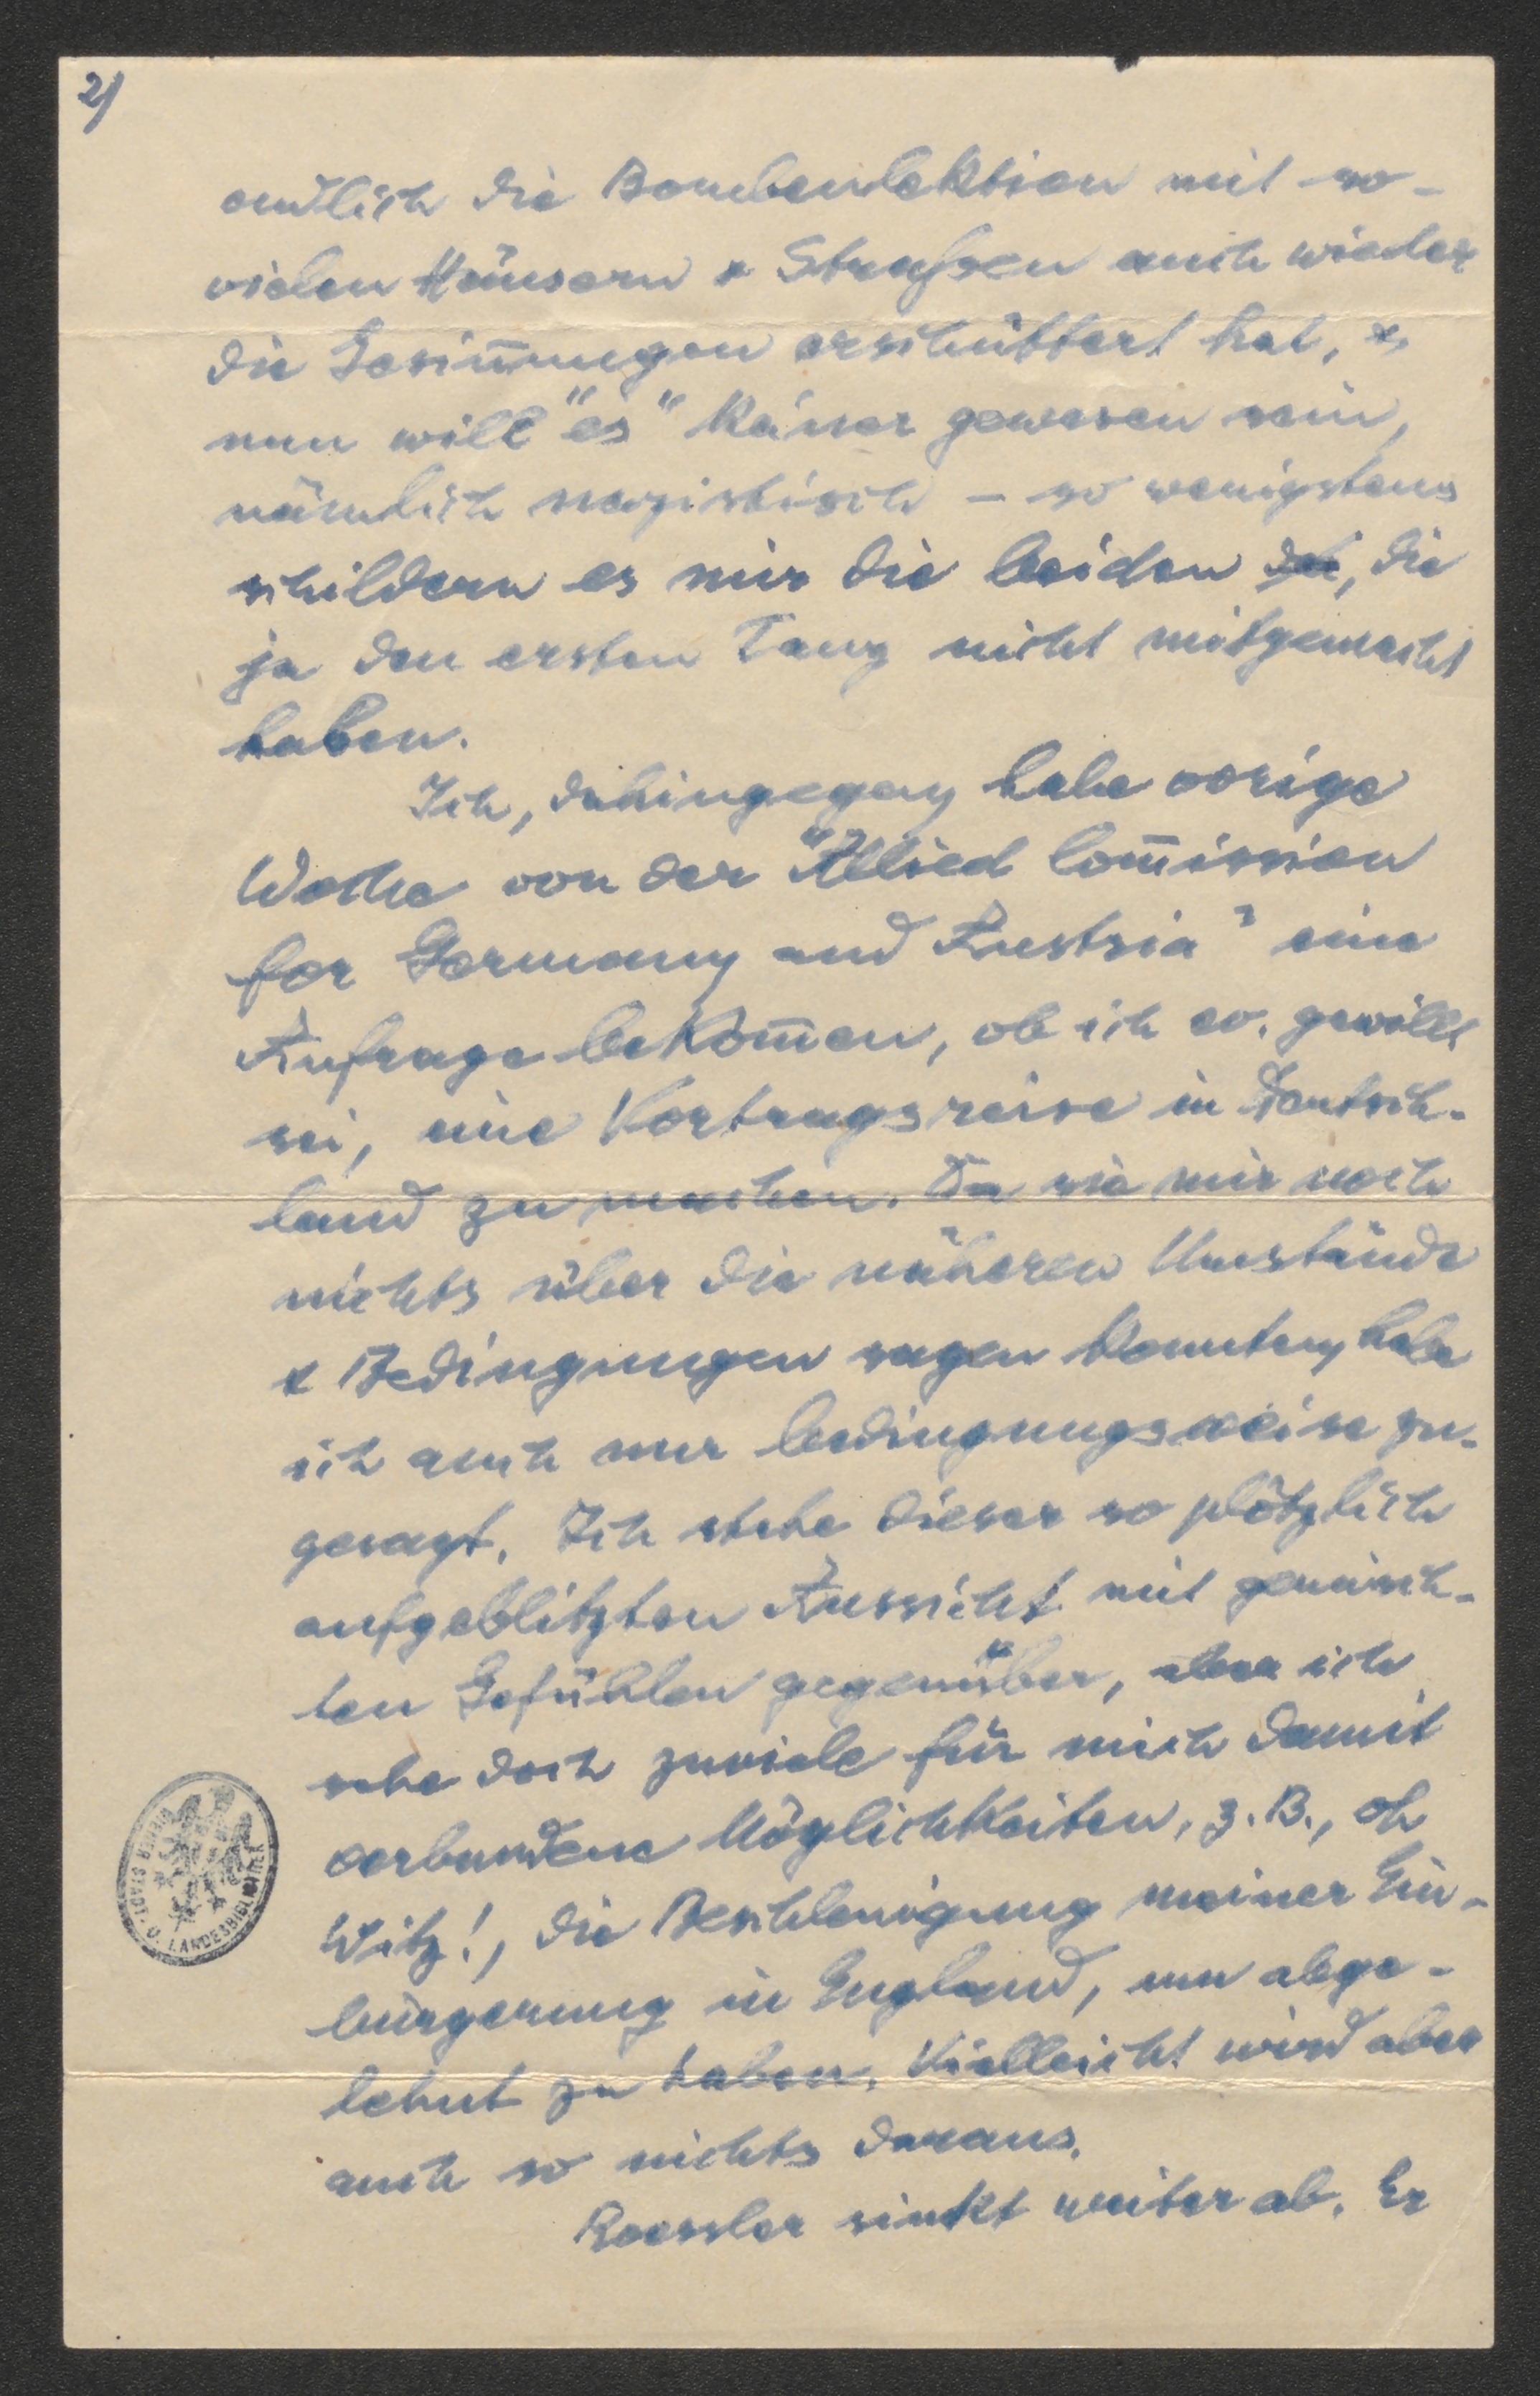 2)
endlich die Bombenlektion mit so-
vielen Häusern & Strafsen auch wieder
die Gesin̄ungen erschüttert hat, &
nun will "es" keiner gewesen sein,
nämlich nazistisch – so wenigstens
schildern es mir die beiden, die
ja den ersten Tanz nicht mitgemacht
haben.
Ich, dahingegen, habe vorige
Woche von der "Allied Com̄ission
for Germany and Austria" eine
Anfrage bekom̄en, ob ich ev. gewillt
sei, eine Vortragsreise in Deutsch-
land zu machen. Da sie mir noch
nichts über die näheren Umstände
& Bedingungen sagen konnten, habe
ich auch nur bedingungsweise zu-
gesagt. Ich stehe dieser so plötzlich
aufgeblitzten Aussicht mit gemisch-
ten Gefühlen gegenüber, aber ich
sehe doch zuviele für mich damit
verbundene Möglichkeiten, z.B., oh
Witz!, die Beschleunigung meiner Ein-
bürgerung in England, um abge-
lehnt zu haben. Vielleicht wird aber
auch so nichts daraus.
Roessler sinkt weiter ab. Er
WIENER STADT- U. LANDESBIBLIOTHEK